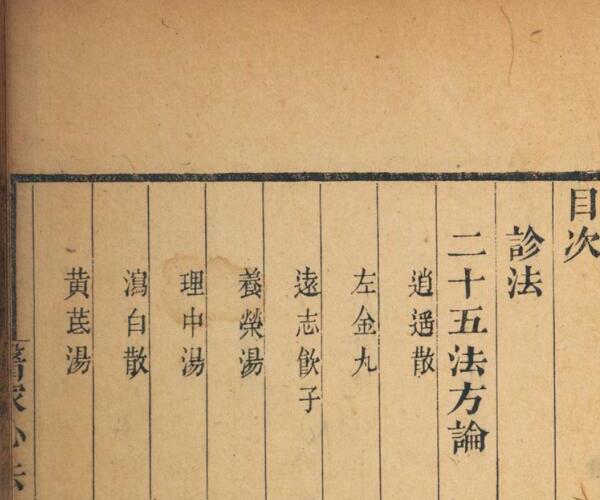 目次
診法
二十五法方論
逍遥散
左金丸
遠志飲子
養榮湯
理中湯
瀉白散
黃芪湯
醫家心法